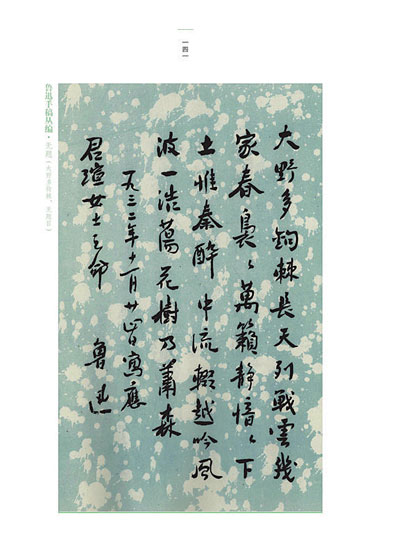 一四一
大野多鉤棘長天列戰雲幾
家春裊〻萬籟静愔〻下
土惟秦醉中流輟越吟風
波一浩蕩花樹乃蕭森
一九三二年十一月廿四日寫應
君瑄女士之命 魯迅
鲁迅手稿丛编·无题（大野多钩棘，